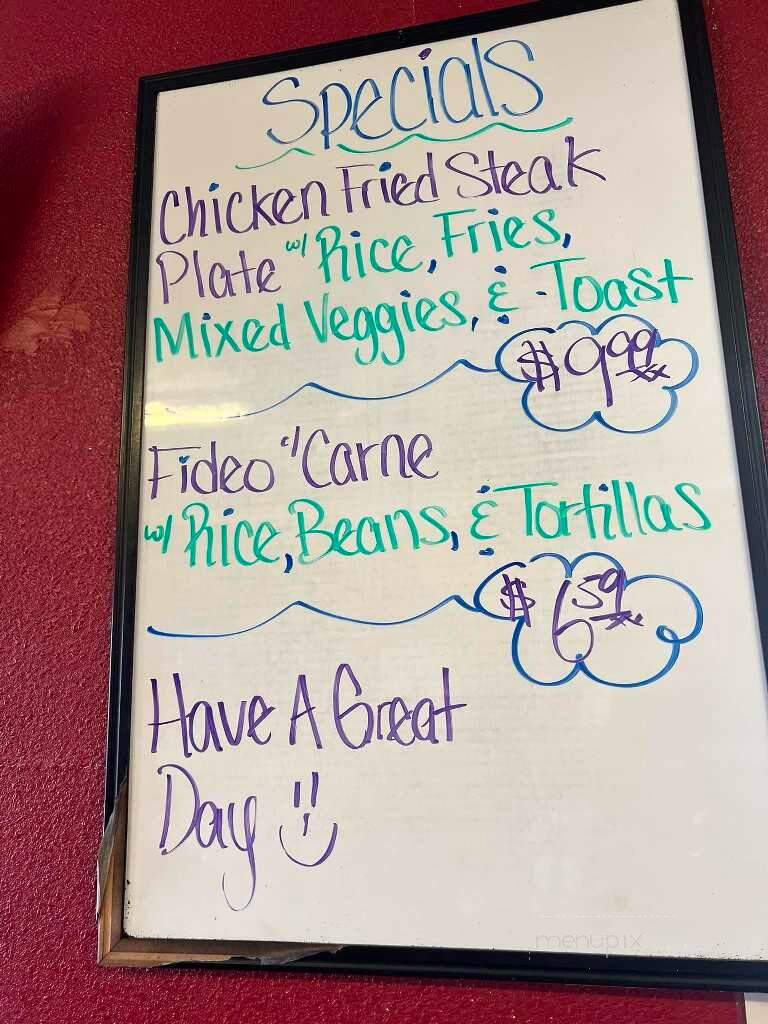 Specials
Chicken Fried Steak
Plate w/ Rice, Fries,
Mixed Veggies, & Toast
$9.99
Fideo c/ Carne
w/ Rice, Beans, & Tortillas
$6.59
Have A Great
Day
menupix